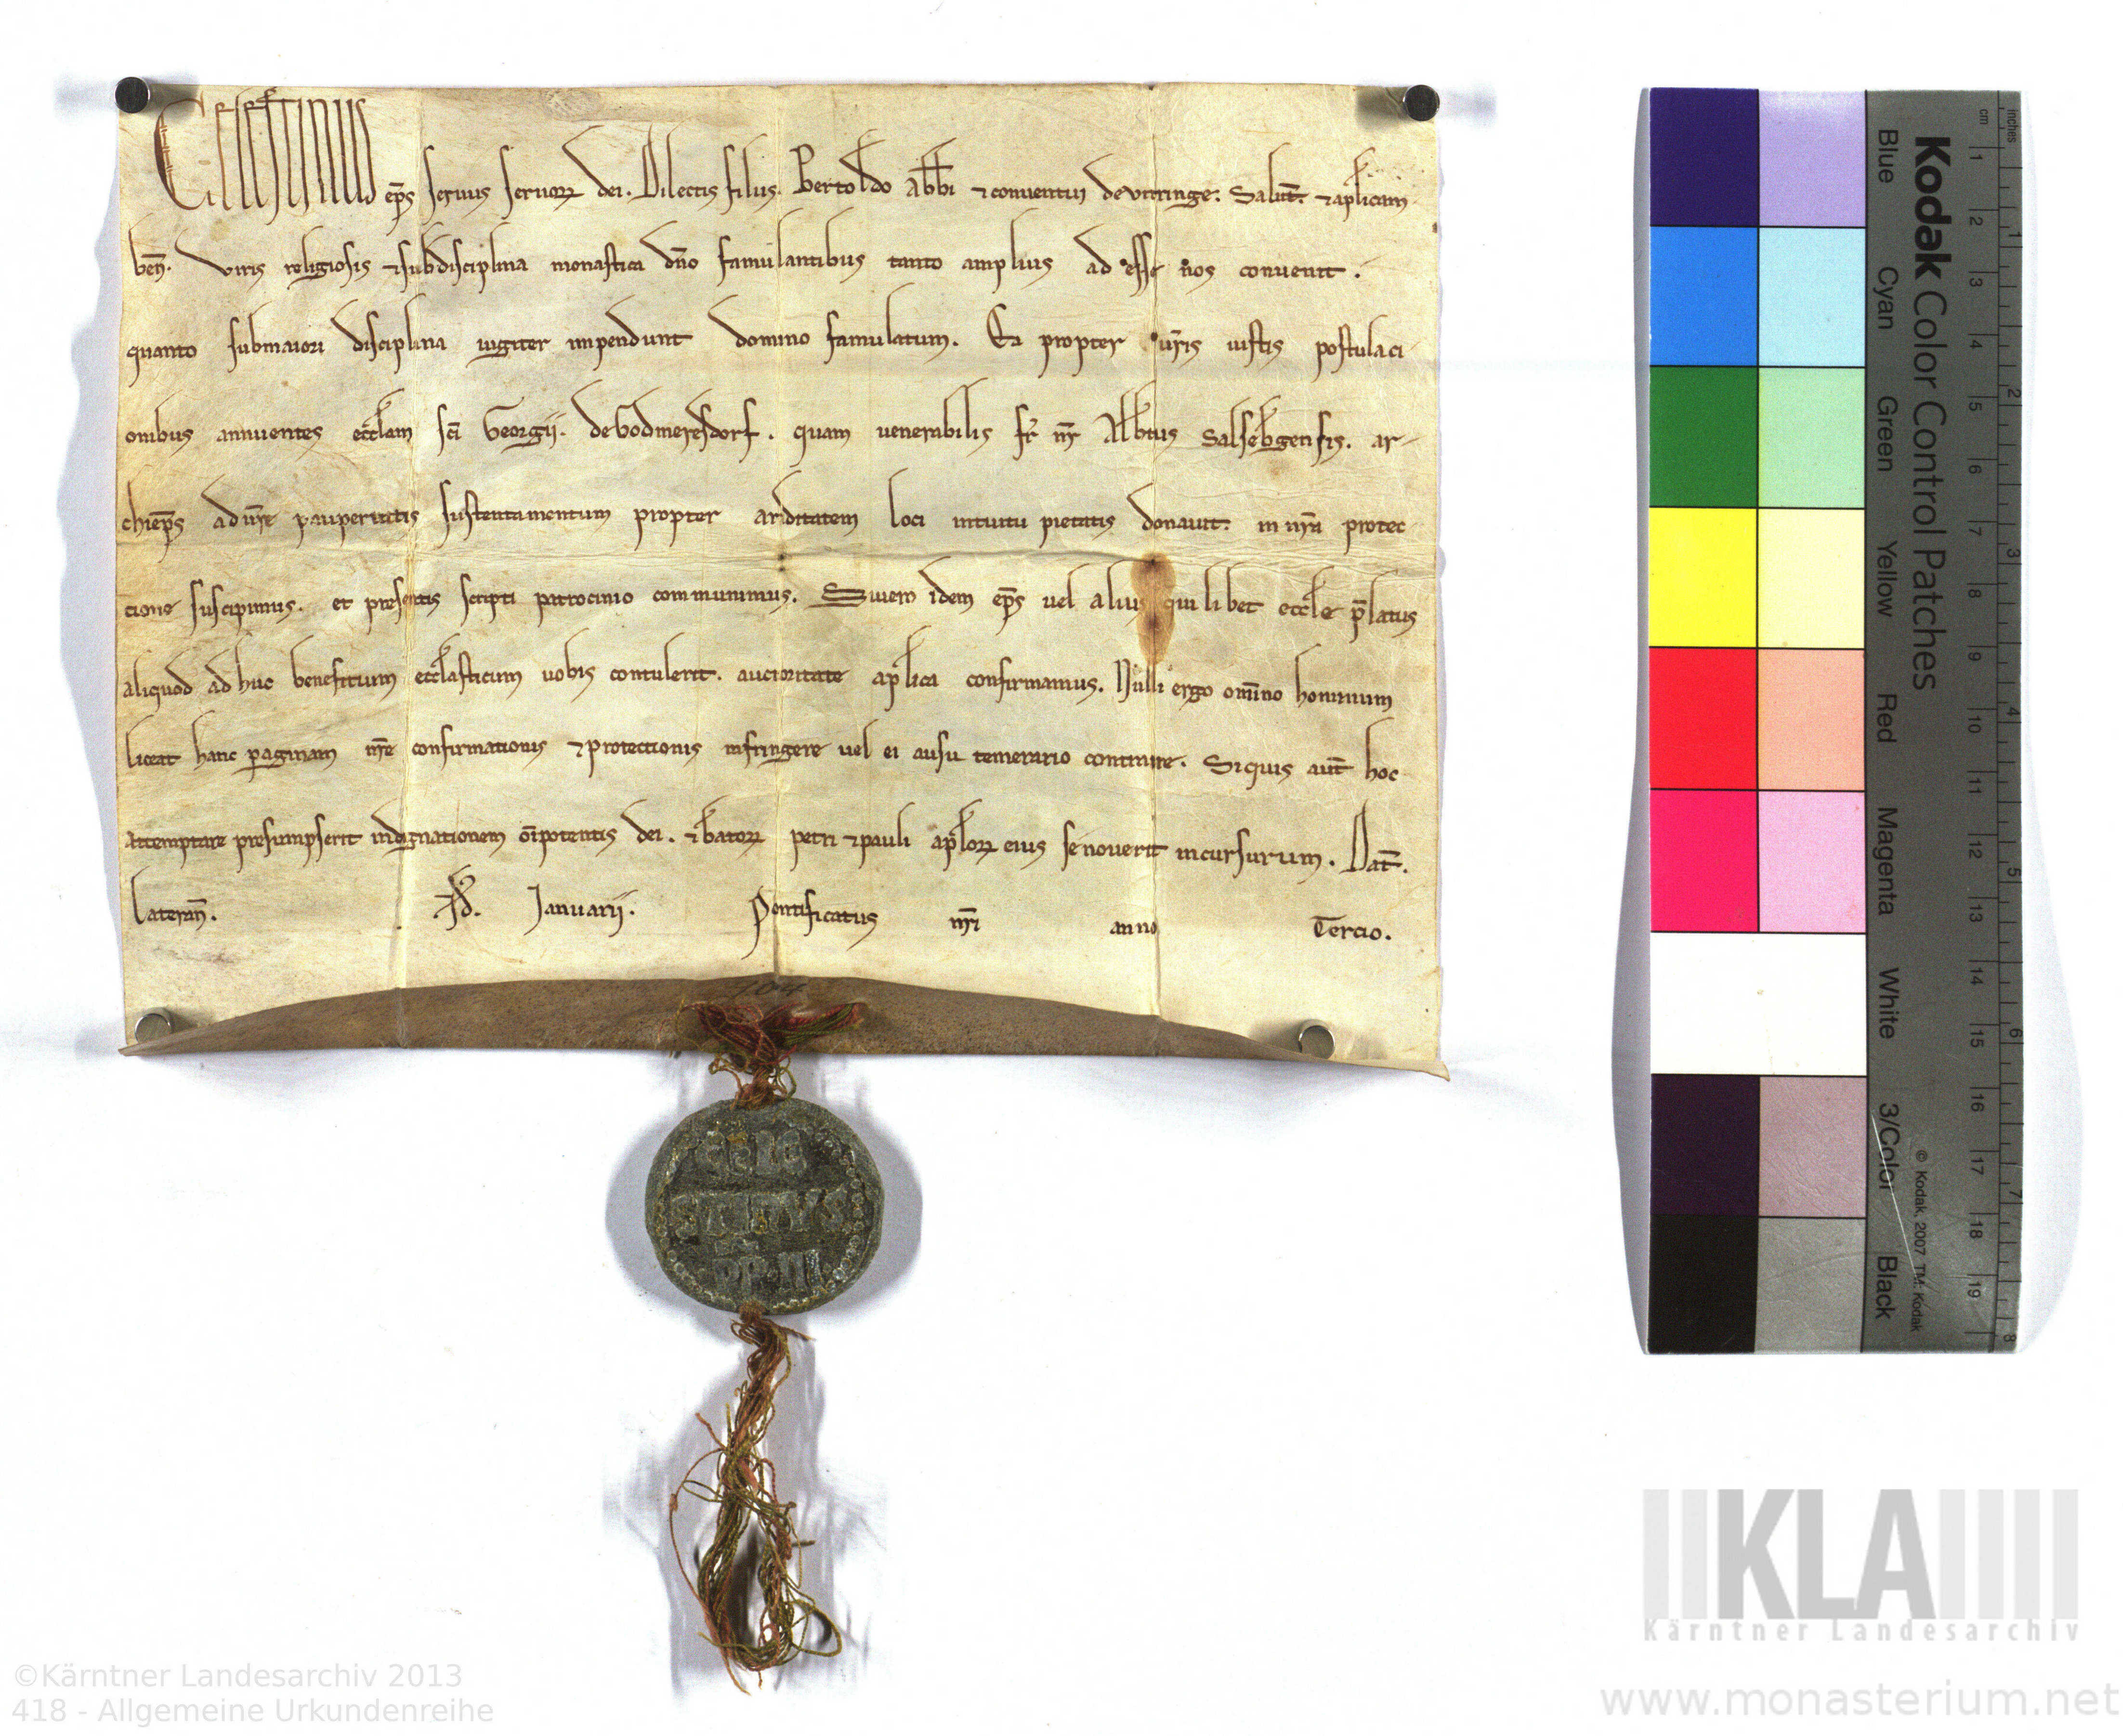 Celestinus ep̅s seruus seruoꝝ dei. Dilectis filiis. Bertoldo abb̅i ⁊ conuentui de uitringe: Salut̅. ⁊ ap̅licam
ben̅. Viris religiosis ⁊ sub disciplina monastica dn̅o famulantibus tanto amplius ad esse nos conuenit.
quanto sub maiori disciplina iugiter impendunt domino famulatum. Ea propter ur̅is iustis postulaci
onibus annuentes eccl̅am sc̅i Georgij. de Godmeresdorf. quam uenerabilis fr̅ nr̅ Alb̅tus Salseb̅gensis. ar-
chiep̅s ad ur̅e paupertatis sustentamentum propter ariditatem loci intuitu pietatis donauit: in nr̅a protec
cione suscipimus. et presentis scripti patrocinio communimus. Si uero idem ep̅s uel alius quilibet eccl̅e p̅latus
aliquod ad huc beneficium eccl̅asticum uobis contulerit. auctoritate ap̅lica confirmamus. Nulli ergo omi̅no hominum
liceat hanc paginam nr̅e confirmationis ⁊ protectionis infringere uel ei ausu temerario contraire. Siquis aut̅ hoc
attemptare presumpserit indignationem oi̅potentis dei. ⁊ b̅atoꝝ petri ⁊ pauli ap̅loꝝ eius se nouerit incursurum. Dat̅.
Lateran̅. Januarij. Pontificatus nr̅i anno Tercio.
104
CELE
STINVS
PP III
Kodak Color Control Patches
Blue Cyan Green Yellow Red Magenta White 3/Color Black
© Kodak, 2007 TM: Kodak
cm 1 2 3 4 5 6 7 8 9 10 11 12 13 14 15 16 17 18 19
inches 1 2 3 4 5 6 7 8
KLA
Kärntner Landesarchiv
©Kärntner Landesarchiv 2013
418 - Allgemeine Urkundenreihe
www.monasterium.net